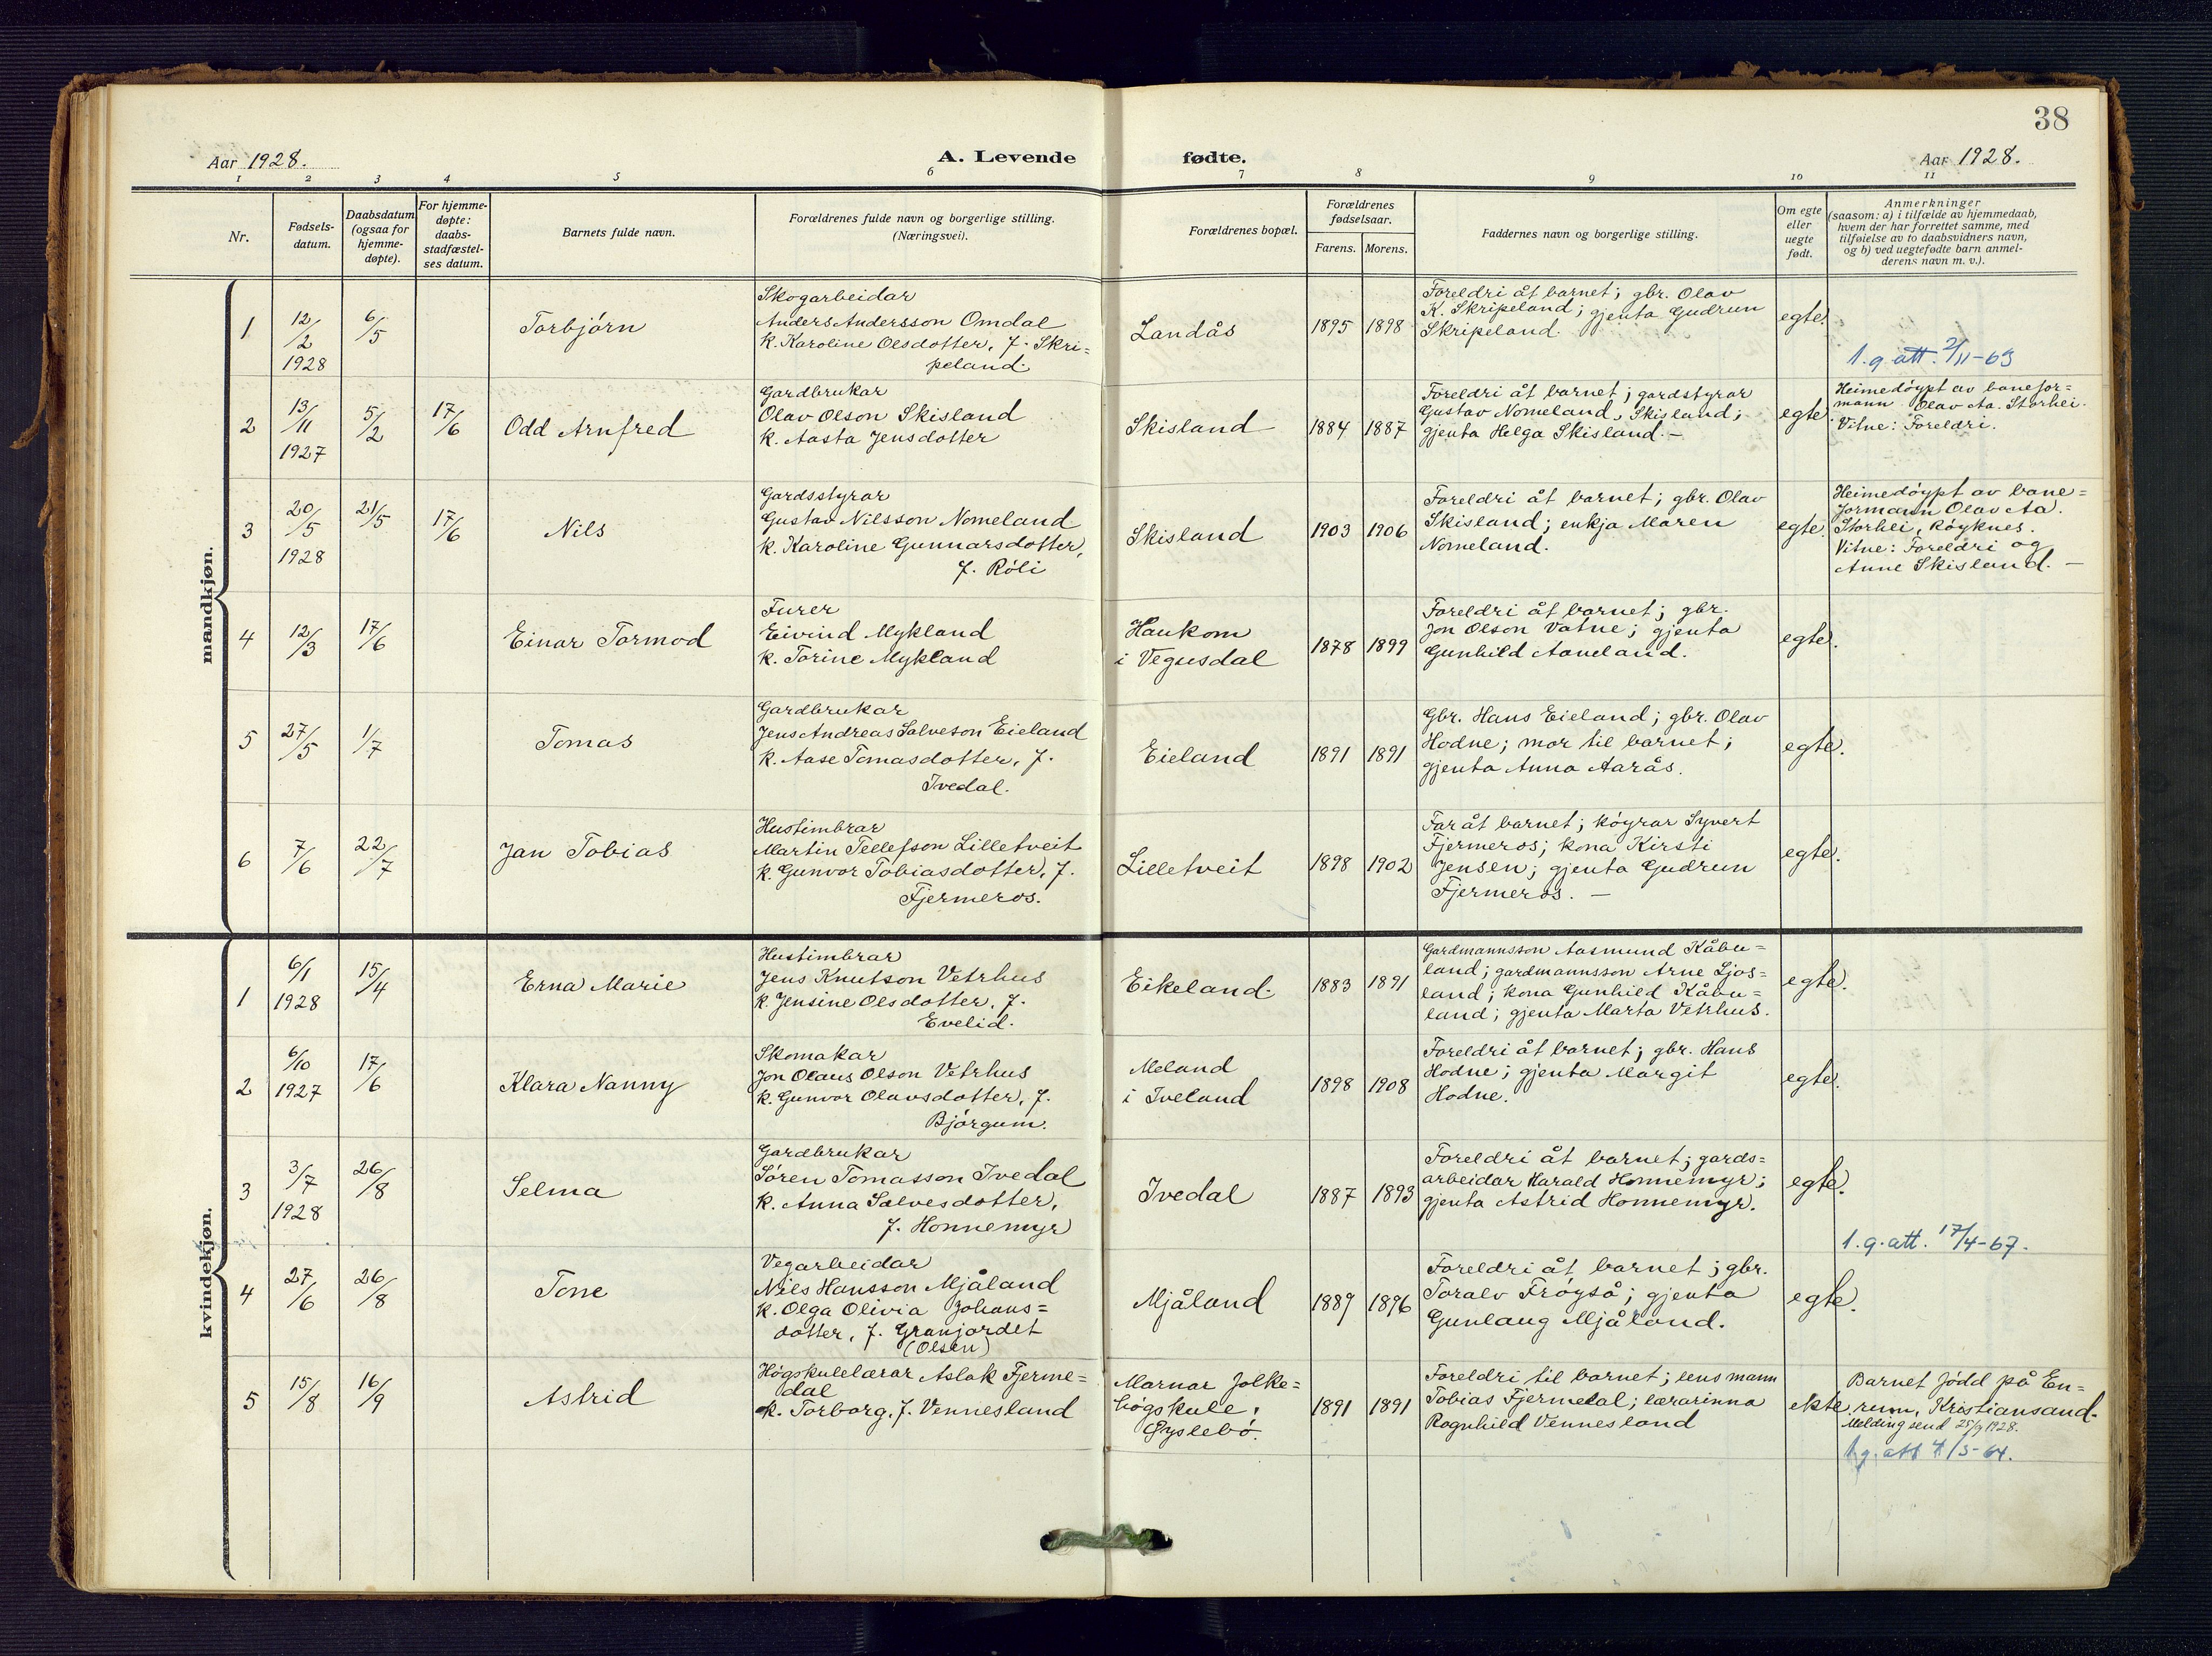 38
Aar 1928.
A. Levende fødte.
Aar 1928.
1 2 3 4 5 6 7 8 9 10 11
Nr.
Fødsels-
datum.
Daabsdatum
(ogsaa for
hjemme-
døpte).
For hjemme-
døpte:
daabs-
stadfæstel-
ses datum.
Barnets fulde navn.
Forældrenes fulde navn og borgerlige stilling.
(Næringsvei).
Forældrenes bopæl.
Forældrenes
fødselsaar.
Farens. Morens.
Faddernes navn og borgerlige stilling.
Om egte
eller
uegte
født.
Anmerkninger
(saasom: a) i tilfælde av hjemmedaab,
hvem der har forrettet samme, med
tilføielse av to daabsvidners navn,
og b) ved uegtefødte barn anmel-
derens navn m. v.).
mandkjøn.
1
12/2
1928
6/5
Torbjørn
Skogarbeidar
Anders Andersson Omdal
k. Karoline Olsdotter, f. Skri=
peland.
Landås
1895 1898
Foreldri åt barnet; gbr. Olav
K. Skripeland; gjenta Gudrun
Skripeland.
egte.
1.g.att. 2/11-63
2
13/11
1927
5/2
17/6
Odd Arnfred
Gardbrukar
Olav Olson Skisland
k. Aasta Jensdotter
Skisland
1884 1887
Foreldri åt barnet; gardstyrar
Gustav Nomeland, Skisland;
gjenta Helga Skisland. —
egte.
Heimedøypt av banefor=
mann Olav Aa. Storhei.
Vitne: Foreldri.
3
20/5
1928
21/5
17/6
Nils
Gardsstyrar
Gustav Nilsson Nomeland
k. Karoline Gunnarsdotter,
f. Røli
Skisland
1903 1906
Foreldri åt barnet; gbr. Olav
Skisland; enkja Maren
Nomeland.
egte.
Heimedøypt av bane=
formann Olav Aa.
Storhei, Røyknes.
Vitne: Foreldri og
Anne Skisland. —
4
12/3
17/6
Einar Tormod
Furer
Eivind Mykland
k. Torine Mykland
Haukom
i Vegusdal
1878 1899
Foreldri åt barnet; gbr.
Jon Olson Vatne; gjenta
Gunhild Aaneland.
egte.
5
27/5
1/7
Tomas
Gardbrukar
Jens Andreas Salveson Eieland
k. Aase Tomasdotter, f.
Ivedal.
Eieland
1891 1891
Gbr. Hans Eieland; gbr. Olav
Hodne; mor til barnet;
gjenta Anna Aarås.
egte.
6
7/6
22/7
Jan Tobias
Hustimbrar
Martin Tellefson Lilletveit
k. Gunvor Tobiasdotter, f.
Fjermeros.
Lilletveit
1898 1902
Far åt barnet; køyrar Syvert
Fjermeros; kona Kirsti
Jensen; gjenta Gudrun
Fjermeros. —
egte.
kvindekjøn.
1
6/1
1928
15/4
Erna Marie
Hustimbrar
Jens Knutson Vetrhus
k. Jensine Olsdotter, f.
Evelid.
Eikeland.
1883 1891
Gardmannsson Aasmund Kåbu=
land; gardmannsson Arne Ljos=
land; kona Gunhild Kåbu=
land; gjenta Marta Vetrhus.
egte.
2
6/10
1927
17/6
Klara Nanny
Skomakar
Jon Olaus Olson Vetrhus
k. Gunvor Olavsdotter, f.
Bjørgum.
Meland
i Iveland
1898 1908
Foreldri åt barnet; gbr. Hans
Hodne; gjenta Margit
Hodne.
egte.
3
3/7
1928
26/8
Selma
Gardbrukar
Søren Tomasson Ivedal
k. Anna Salvesdotter,
f. Honnemyr
Ivedal
1887 1893
Foreldri åt barnet; gards=
arbeidar Harald Honnemyr;
gjenta Astrid Honnemyr.
egte.
1.g.att. 17/4-67.
4
27/6
26/8
Tone
Vegarbeidar
Nils Hansson Mjåland
k. Olga Olivia Johans=
dotter, f. Granjordet
(Olsen)
Mjåland
1889 1896
Foreldri åt barnet; gbr.
Toralv Frøyså; gjenta
Gunlaug Mjåland.
egte.
5
15/8
16/9
Astrid
Høgskulelærar Aslak Fjerme=
dal
k. Torborg, f. Vennesland
Marnar folke=
høgskule,
Øyslebø.
1891 1891
Foreldri til barnet; lensmann
Tobias Fjermedal; lærarinna
Ragnhild Vennesland
ekte
Barnet fødd på En=
rum, Kristiansand.
Melding send 25/9 1928.
1.g.att 4/5-64.